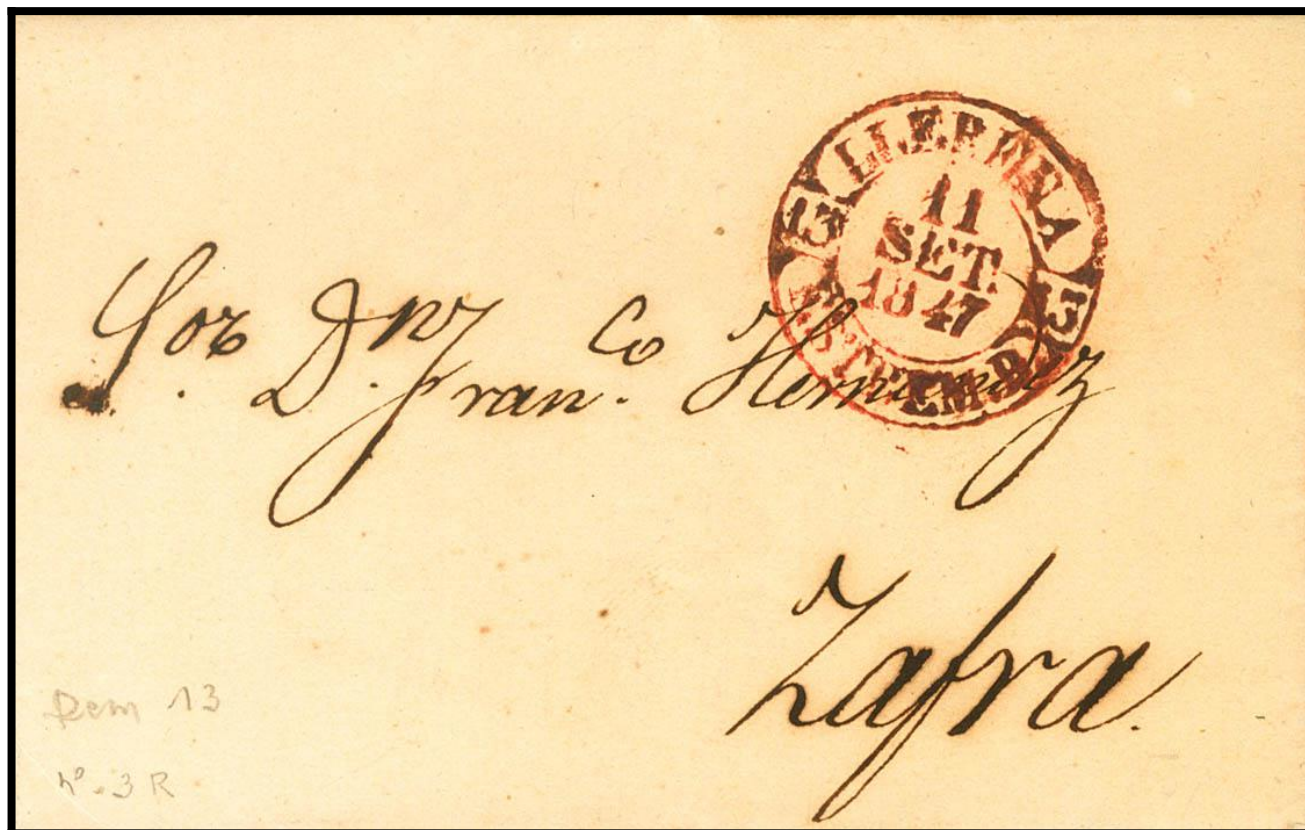 LLERENA
13 13
11
SET.
1847
ESTREMAD.
Sor Dn Franco Hernandez
Zafra.
Dem 13
nº. 3 R